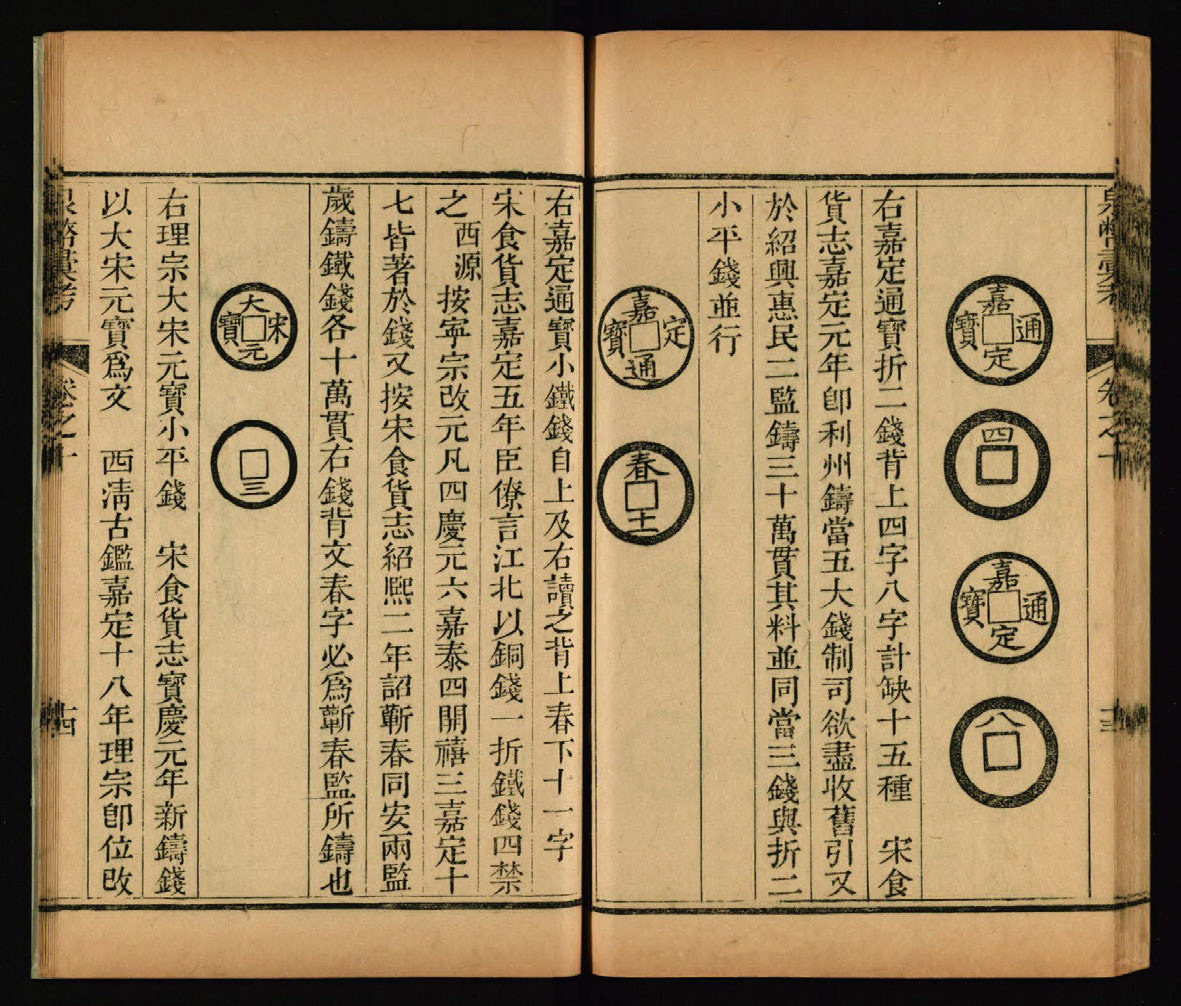 泉幣彙考
卷之十
十三
嘉定通寶
四
嘉定通寶
八
右嘉定通寶折二錢背上四字八字計缺十五種　宋食
貨志嘉定元年卽利州鑄當五大錢制司欲盡收舊引又
於紹興惠民二監鑄三十萬貫其料並同當三錢與折二
小平錢並行
嘉定通寶
春十一
右嘉定通寶小鐵錢自上及右讀之背上春下十一字
宋食貨志嘉定五年臣僚言江北以銅錢一折鐵錢四禁
之　西源　按寧宗改元凡四慶元六嘉泰四開禧三嘉定十
七皆著於錢又按宋食貨志紹熙二年詔蘄春同安兩監
歲鑄鐵錢各十萬貫右錢背文春字必爲蘄春監所鑄也
大宋元寶
三
右理宗大宋元寶小平錢　宋食貨志寶慶元年新鑄錢
以大宋元寶爲文　西淸古鑑嘉定十八年理宗卽位改
泉幣彙考
卷之十
十四